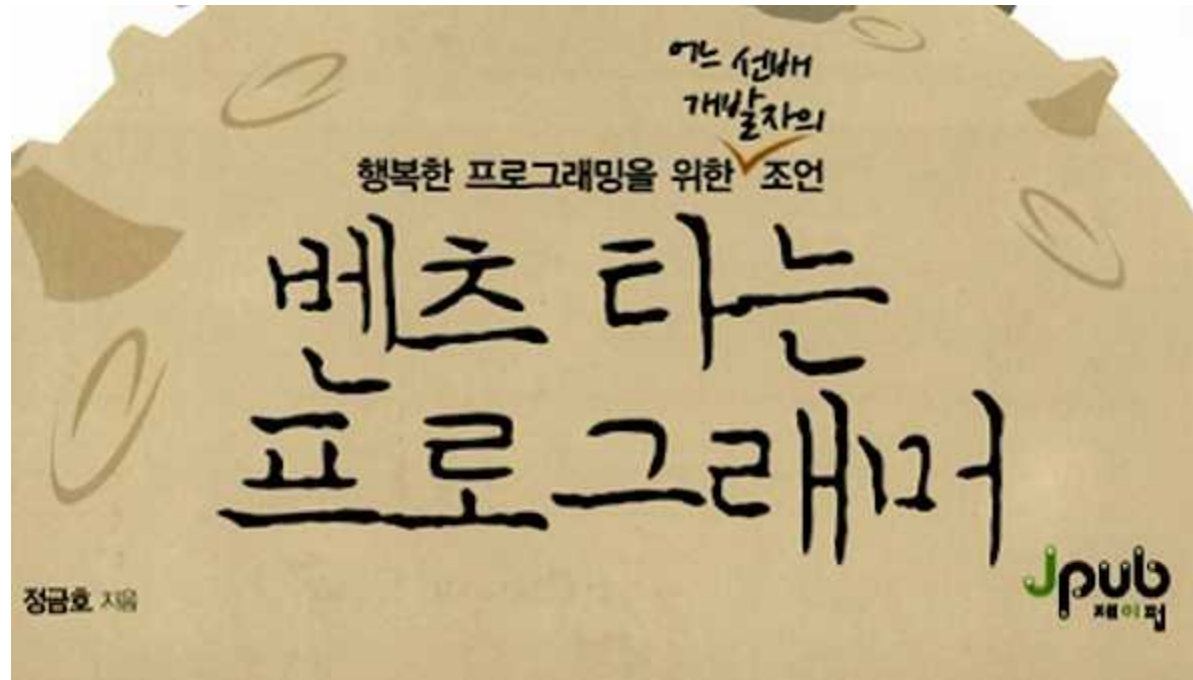 어느 선배
개발자의
행복한 프로그래밍을 위한 조언
벤츠 타는
프로그래머
정금호 지음
Jpub
제이펍